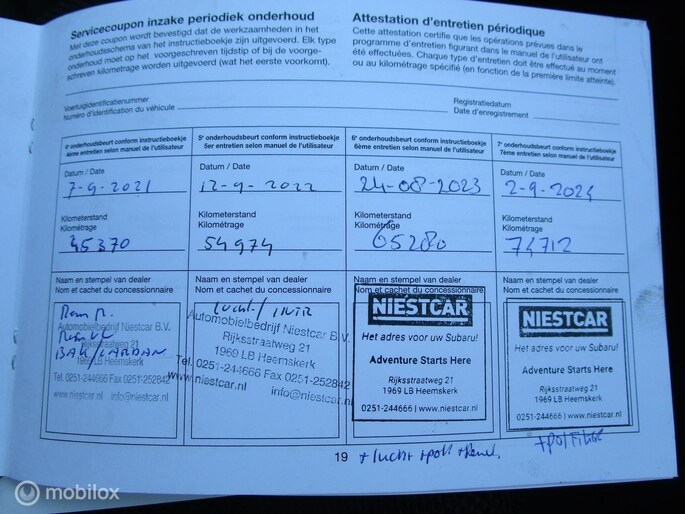 Servicecoupon inzake periodiek onderhoud
Met deze coupon wordt bevestigd dat de werkzaamheden in het
onderhoudsschema van het instructieboekje zijn uitgevoerd. Elk type
onderhoud moet op het voorgeschreven tijdstip of bij de voorge-
schreven kilometrage worden uitgevoerd (wat het eerste voorkomt).
Attestation d'entretien périodique
Cette attestation certifie que les opérations prévues dans le
programme d'entretien figurant dans le manuel de l'utilisateur ont
été effectuées. Chaque type d'entretien doit être effectué au moment
ou au kilométrage spécifié (en fonction de la première limite atteinte).
Voertuigidentificatienummer
Numéro d'identification du véhicule
Registratiedatum
Date d'enregistrement
4e onderhoudsbeurt conform instructieboekje
4ème entretien selon manuel de l'utilisateur
Datum / Date
7-9-2021
Kilometerstand
Kilométrage
45370
Naam en stempel van dealer
Nom et cachet du concessionnaire
Rem
BAK/CARDAN
Automobielbedrijf Niestcar B.V.
Rijksstraatweg 21
Tel. 0251-244666 Fax 0251-252842
www.niestcar.nl info@niestcar.nl
5e onderhoudsbeurt conform instructieboekje
5er entretien selon manuel de l'utilisateur
Datum / Date
12-9-2022
Kilometerstand
Kilométrage
54974
Naam en stempel van dealer
Nom et cachet du concessionnaire
Lucht/INTR
Automobielbedrijf Niestcar B.V.
Rijksstraatweg 21
1969 LB Heemskerk
Tel. 0251-244666 Fax 0251-252842
www.niestcar.nl info@niestcar.nl
6e onderhoudsbeurt conform instructieboekje
6ème entretien selon manuel de l'utilisateur
Datum / Date
24-08-2023
Kilometerstand
Kilométrage
65280
Naam en stempel van dealer
Nom et cachet du concessionnaire
NIESTCAR
Het adres voor uw Subaru!
Adventure Starts Here
Rijksstraatweg 21
1969 LB Heemskerk
0251-244666 | www.niestcar.nl
7e onderhoudsbeurt conform instructieboekje
7ème entretien selon manuel de l'utilisateur
Datum / Date
2-9-2024
Kilometerstand
Kilométrage
74712
Naam en stempel van dealer
Nom et cachet du concessionnaire
NIESTCAR
Het adres voor uw Subaru!
Adventure Starts Here
Rijksstraatweg 21
1969 LB Heemskerk
0251-244666 | www.niestcar.nl
19
+lucht +poll
© mobilox